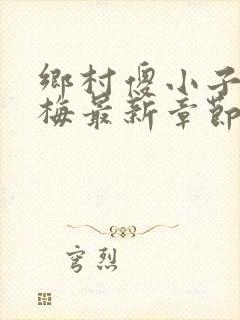 鄉村傻小子
梅最新章節
穹烈